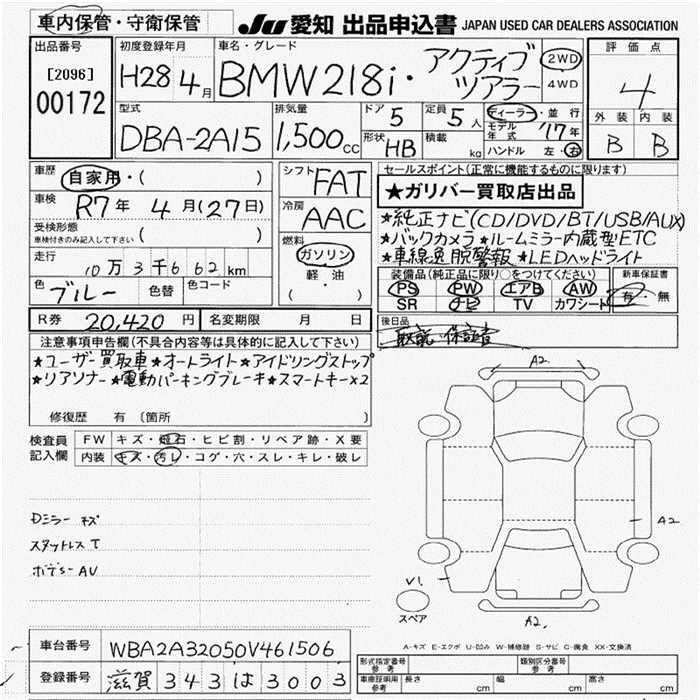 車内保管・守衛保管
JU 愛知 出品申込書 JAPAN USED CAR DEALERS ASSOCIATION
出品番号
[2096]
00172
初度登録年月
H28年4月
車名・グレード
BMW218i・アクティブ
ツアラー
2WD
4WD
評価点
4
外装 内装
B B
型式
DBA-2A15
排気量
1,500cc
ドア 5
定員 5人
形状 HB
積載 kg
ディーラー・並行
モデル年式 '17年
ハンドル 左・右
車歴
自家用・( )
車検
R7年4月(27日)
受検形態
車検付きのみ記入して下さい ( )
走行
10万3千662km
色 ブルー 色替 色コード
シフト FAT
冷房 AAC
燃料
ガソリン
軽油
( )
セールスポイント(正常に機能するものに限ります)
★ガリバー買取店出品
★純正ナビ(CD/DVD/BT/USB/AUX)
★バックカメラ★ルームミラー内蔵型ETC
★車線逸脱警報★LEDヘッドライト
装備品(純正品に限り○をつけてください)
PS PW エアB AW
SR ナビ TV カワシート
新車保証書
有・無
後日品
取説 保証書
R券 20,420円 名変期限 月 日
注意事項申告欄(不具合内容等は具体的に記入して下さい)
★ユーザー買取車★オートライト★アイドリングストップ
★リアソナー★電動パーキングブレーキ★スマートキー×2
修復歴 有〔箇所 〕
検査員記入欄
FW キズ・飛石・ヒビ割・リペア跡・X要
内装 キズ・汚レ・コゲ・穴・スレ・キレ・破レ
Dミラー キズ
スタットレスT
ボデーAU
A2
A2
V1
スペア
A2
A-キズ E-エクボ U-凹み W-補修跡 S-サビ C-腐食 XX-交換済
車台番号 WBA2A32050V461506
登録番号 滋賀343は3003
形式指定番号
参考
類別区分番号
参考
車庫証明用
参考
長さ cm 幅 cm 高さ cm